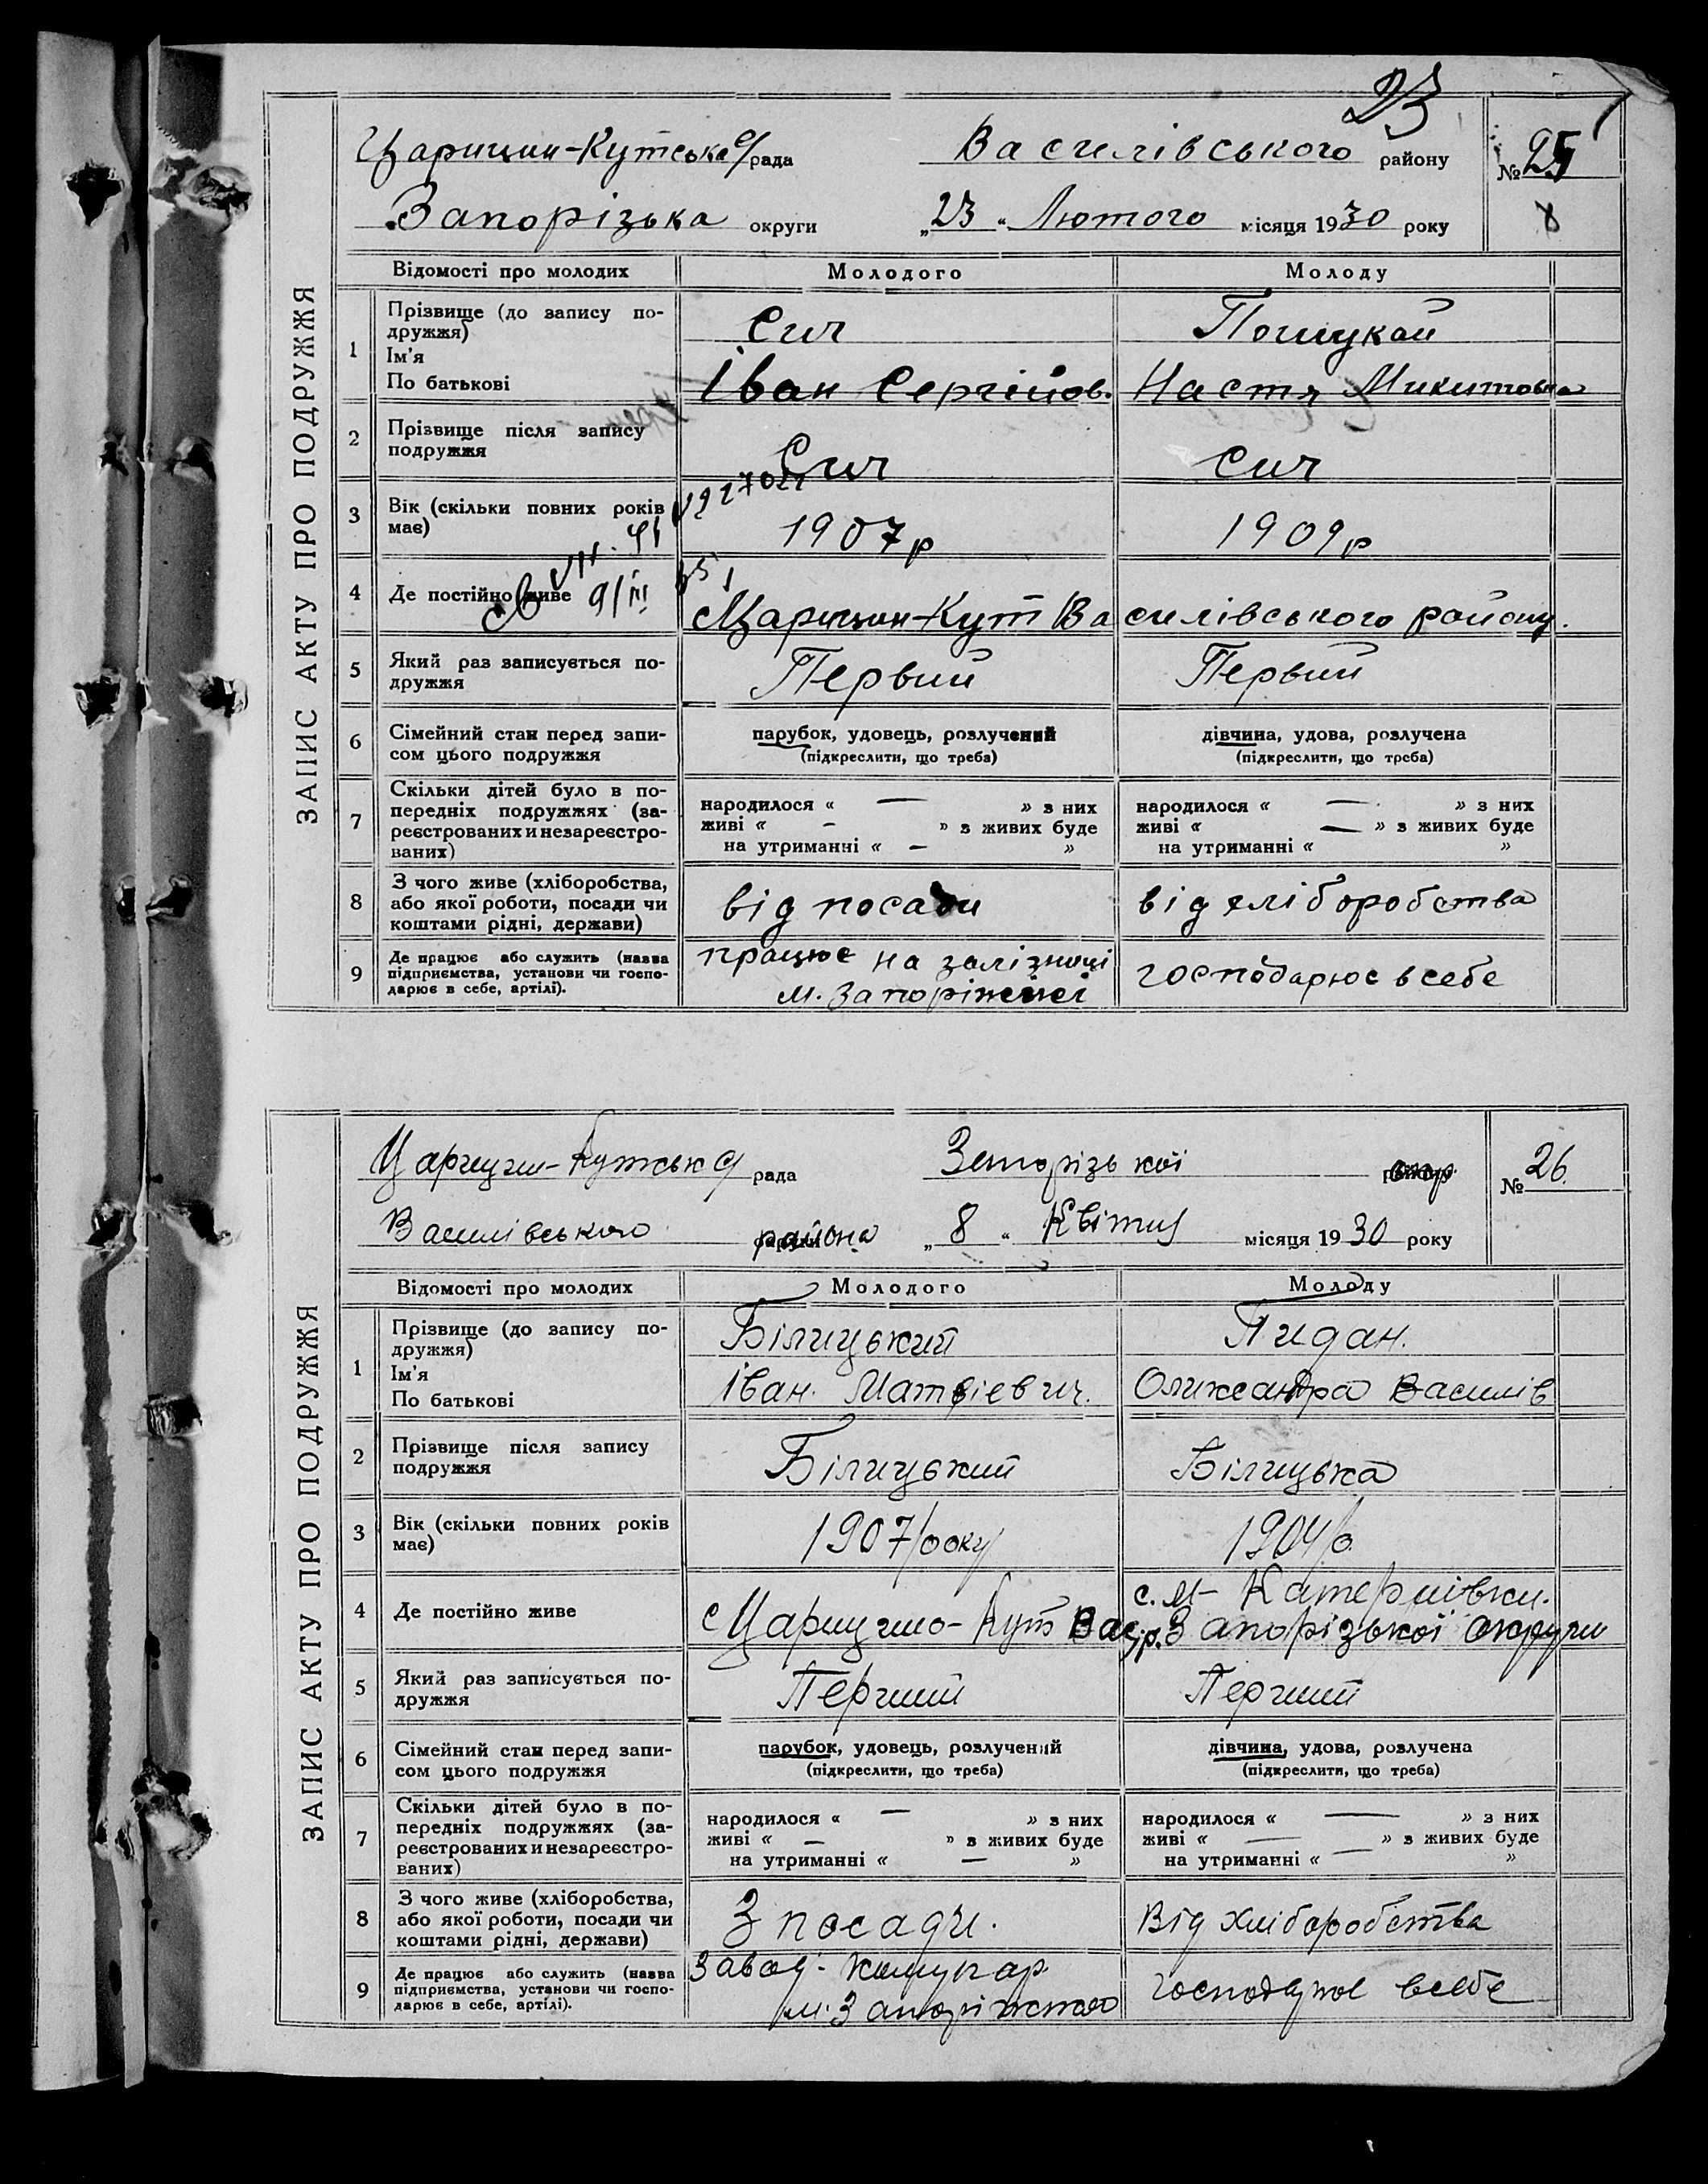 23
Царицин-Кутська с/рада Василівського району №25
Запорізька округи „23“ Лютого місяця 1930 року
ЗАПИС АКТУ ПРО ПОДРУЖЖЯ
Відомості про молодих Молодого Молоду
1 Прізвище (до запису по-
дружжя) Сич
Ім'я
По батькові Іван Сергійов. Настя Микитовна
2 Прізвище після запису
подружжя Сич Сич
3 Вік (скільки повних років
має) 1907р 1909р
4 Де постійно живе 9/III Царицин-Кут Василівського району.
5 Який раз записується по-
дружжя Первий Первий
6 Сімейний стан перед запи-
сом цього подружжя
парубок, удовець, розлучений дівчина, удова, розлучена
(підкреслити, що треба) (підкреслити, що треба)
7 Скільки дітей було в по-
передніх подружжях (за-
реєстрованих и незареєстро-
ваних)
народилося « — » з них народилося « — » з них
живі « – » з живих буде живі « — » з живих буде
на утриманні « – » на утриманні « »
8 З чого живе (хліборобства,
або якої роботи, посади чи
коштами рідні, держави)
від посади від хліборобства
9 Де працює або служить (назва
підприємства, установи чи госпо-
дарює в себе, артілі).
працює на залізниці господарює в себе
м. Запоріжжі
Царицин-Кутська рада Запорізької окр №26.
Василівського района „8“ Квітня місяця 1930 року
ЗАПИС АКТУ ПРО ПОДРУЖЖЯ
Відомості про молодих Молодого Молоду
1 Прізвище (до запису по-
дружжя) Білицький Пидан.
Ім'я
По батькові Іван. Матвієвич. Олександра Василів
2 Прізвище після запису
подружжя Білицький Білицька
3 Вік (скільки повних років
має) 1907/року 1904/р.
4 Де постійно живе
с. М- Катеринівки.
с Царицино-Кут Вас.р. Запорізької округи
5 Який раз записується по-
дружжя Перший Перший
6 Сімейний стан перед запи-
сом цього подружжя
парубок, удовець, розлучений дівчина, удова, розлучена
(підкреслити, що треба) (підкреслити, що треба)
7 Скільки дітей було в по-
передніх подружжях (за-
реєстрованих и незареєстро-
ваних)
народилося « — » з них народилося « — » з них
живі « — » з живих буде живі « — » з живих буде
на утриманні « — » на утриманні « — »
8 З чого живе (хліборобства,
або якої роботи, посади чи
коштами рідні, держави)
З посади. Від хліборобства
9 Де працює або служить (назва
підприємства, установи чи госпо-
дарює в себе, артілі).
Завод- Комунар господарює в себе
м. Запоріжжя